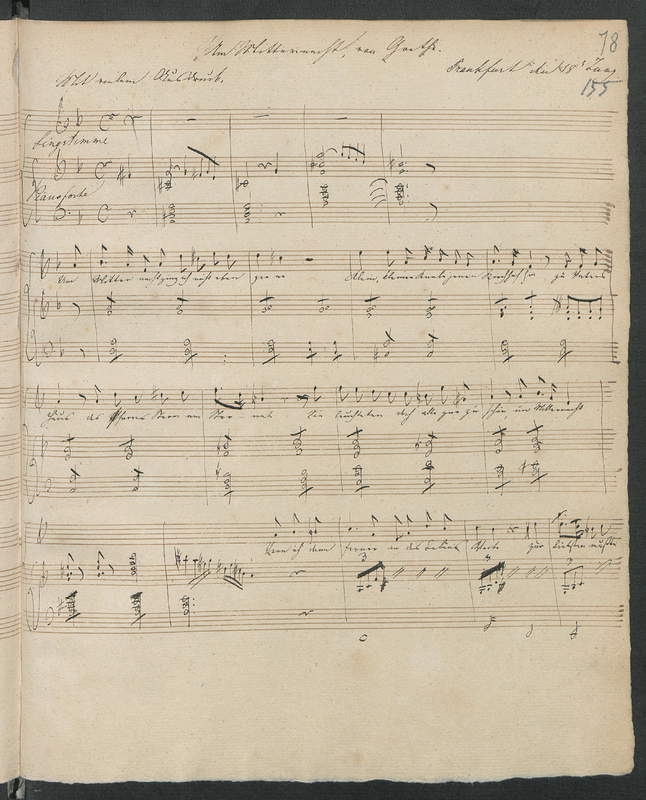 Um Mitternacht, von Goethe.
78
Frankfurt den 18t Juny
155
Mit vielem Ausdruck.
Singstimme
Pianoforte
Um Mitter nacht ging ich nicht eben ger ne
klein, kleiner Knabe jenen Kirchhof hin zu Vaters
Haus des Pfarrers Stern am Ster ne
Sie leuchteten doch alle gar zu schön um Mitternacht
Wenn ich dann ferner in des Lebens Weite zur Liebsten mußte